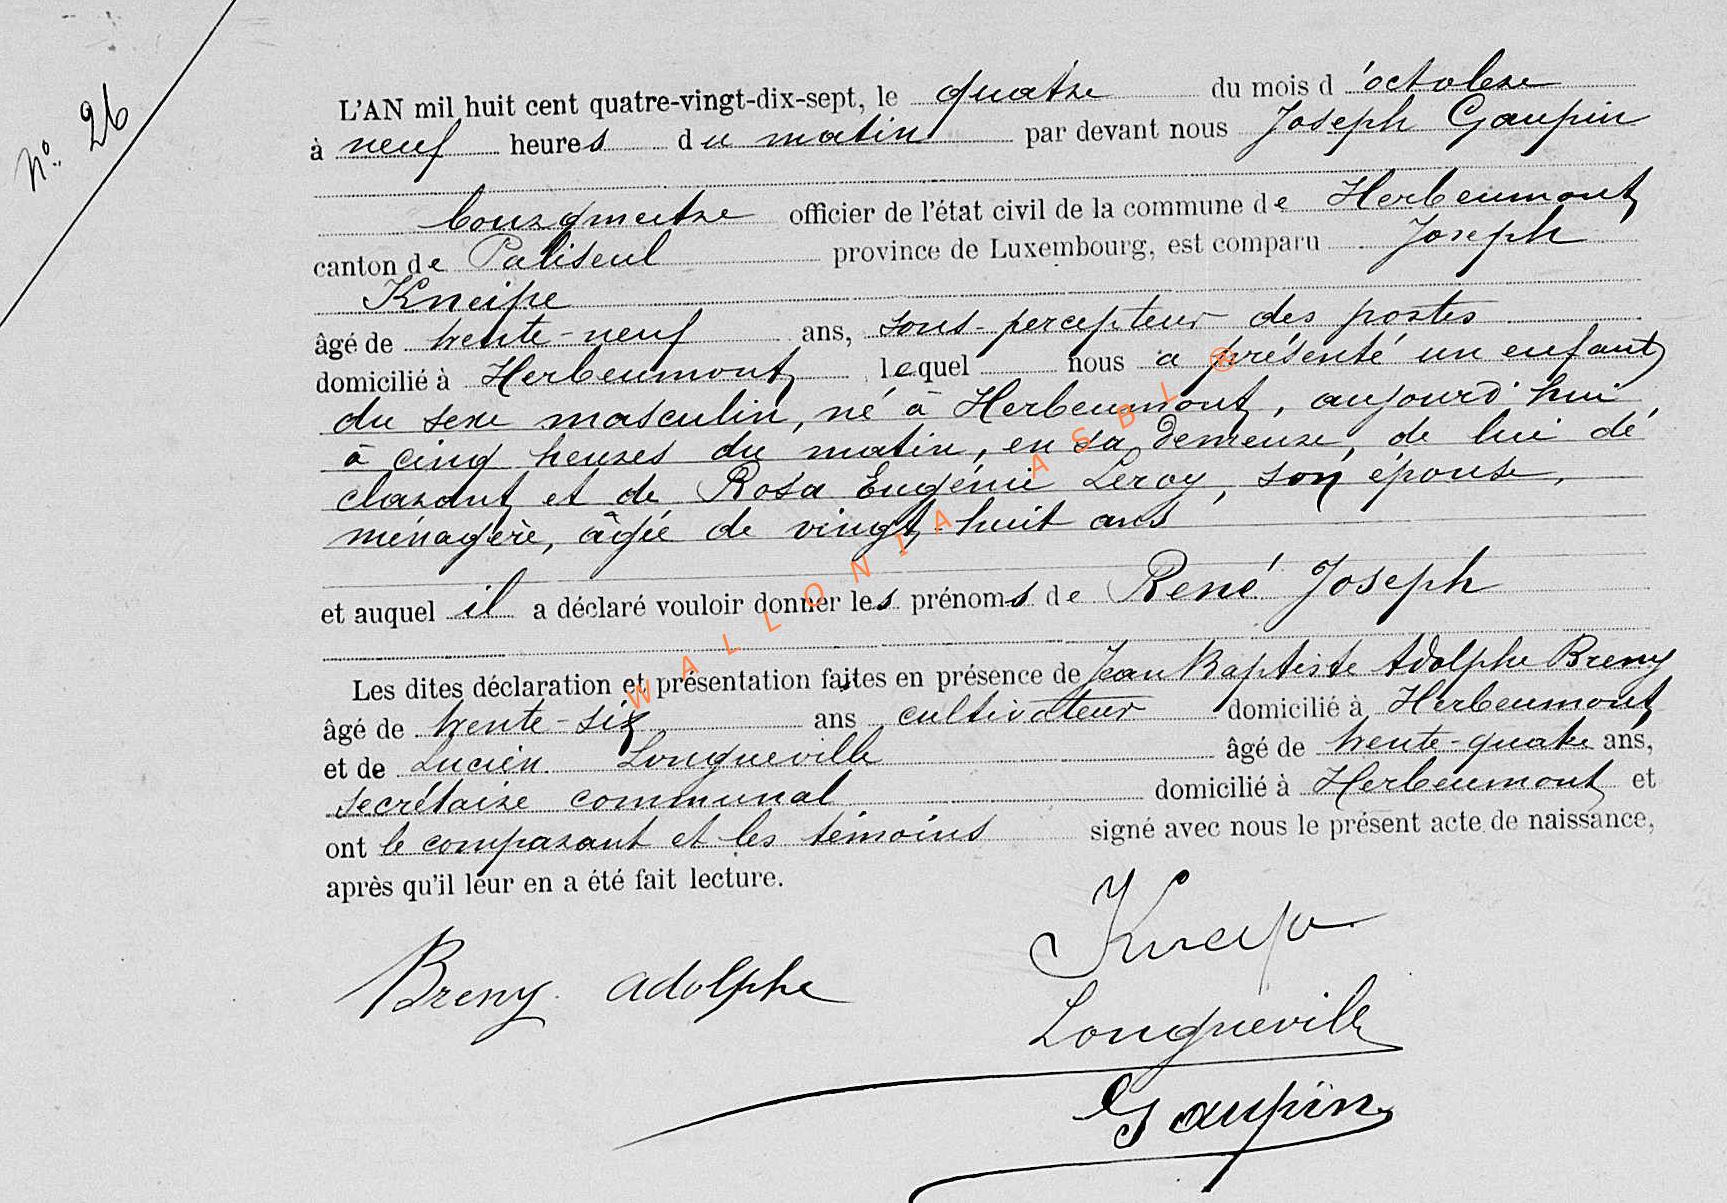 N° 26
L'AN mil huit cent quatre-vingt-dix-sept, le quatre du mois d'octobre
à neuf heures du matin par devant nous Joseph Gaupin
bourgmestre officier de l'état civil de la commune de Herbeumont
canton de Paliseul province de Luxembourg, est comparu Joseph
Kneipe
âgé de trente-neuf ans, sous-percepteur des postes
domicilié à Herbeumont lequel nous a présenté un enfant
du sexe masculin, né à Herbeumont, aujourd'hui
à cinq heures du matin, en sa demeure, de lui dé
clarant et de Rosa Eugénie Leroy, son épouse,
ménagère, âgée de vingt-huit ans
et auquel il a déclaré vouloir donner les prénoms de René Joseph
Les dites déclaration et présentation faites en présence de Jean Baptiste Adolphe Breny
âgé de trente-six ans cultivateur domicilié à Herbeumont
et de Lucien Longueville âgé de trente-quatre ans,
secrétaire communal domicilié à Herbeumont et
ont le comparant et les témoins signé avec nous le présent acte de naissance,
après qu'il leur en a été fait lecture.
Kneipe
Breny Adolphe
Longueville
Gaupin
WALLONIA ASBL ®